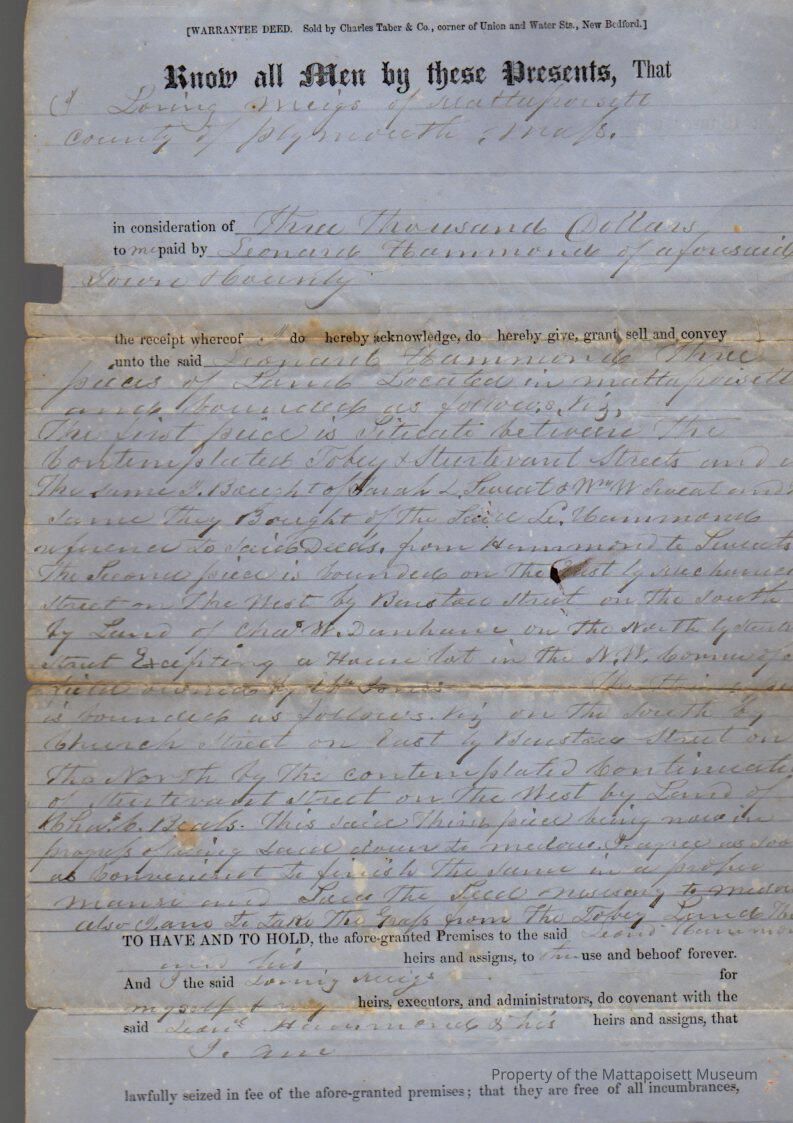 [WARRANTEE DEED. Sold by Charles Taber & Co., corner of Union and Water Sts., New Bedford.]
Know all Men by these Presents, That
I Loring Meigs of Mattapoisett
County of Plymouth, Mass.
in consideration of Three Thousand Dollars
to me paid by Leonard Hammond of aforesaid
Town & County
the receipt whereof I do hereby acknowledge, do hereby give, grant, sell and convey
unto the said Leonard Hammond Three
pieces of Land Located in mattapoisett
and bounded as follows, viz,
The first piece is Situate between The
Contemplated Tobey & Sturtevant Streets and
The same I Bought of Sarah L. Sweat & Wm W Sweat and
same They Bought of the Said L. Hammond
reference to said Deeds, from Hammond to Sweats
The Second piece is bounded on The East by Mechanics
Street on The West by Barstow Street on the South
by Land of Chas W. Dunham on the North by
Street Excepting a House lot in the N.W. Corner of
owned by
is bounded as follows. viz on the South by
Church Street on East by Barstow Street on
The North by The contemplated Continuati
of Sturtevant Street on The West by Land of
Chas. C. Beals. This said Third piece being now in
progress of being Laid down to medow. I agree as soon
as Convenient To finish The same in a proper
and The Seed to
also I am To Take The Grass from The Tobey Land
TO HAVE AND TO HOLD, the afore-granted Premises to the said Leond Hammon
and his heirs and assigns, to use and behoof forever.
And I the said Loring Meigs for
myself & my heirs, executors, and administrators, do covenant with the
said Leond Hammond & his heirs and assigns, that
I am
lawfully seized in fee of the afore-granted premises; that they are free of all incumbrances,
Property of the Mattapoisett Museum